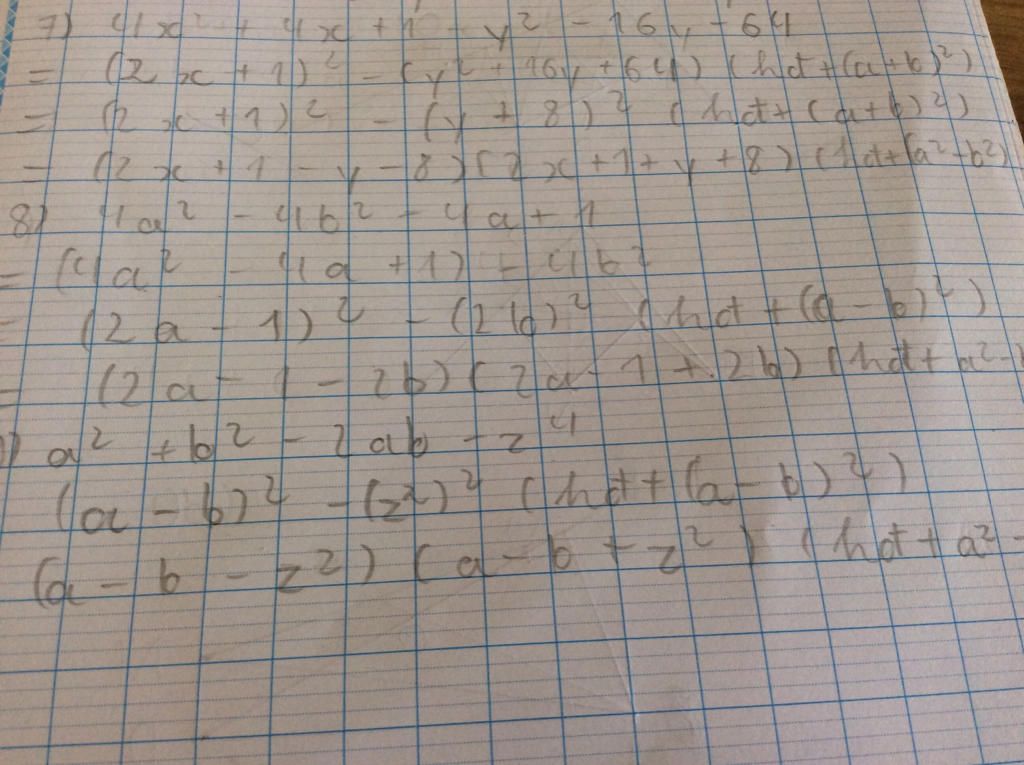 7) 4x² + 4x + 1 - y² - 16y - 64
= (2x+1)² - (y² + 16y + 64) (hđt (a+b)²)
= (2x+1)² - (y + 8)² (hđt (a+b)²)
= (2x + 1 - y - 8)(2x + 1 + y + 8) (hđt (a² - b²)
8) 4a² - 4b² - 4a + 1
= (4a² - 4a + 1) - 4b²
= (2a - 1)² - (2b)² (hđt (a - b)²)
= (2a - 1 - 2b)(2a - 1 + 2b) (hđt a² -
) a² + b² - 2ab - z⁴
(a - b)² - (z²)² (hđt (a - b)²)
(a - b - z²)(a - b + z²) (hđt a² -